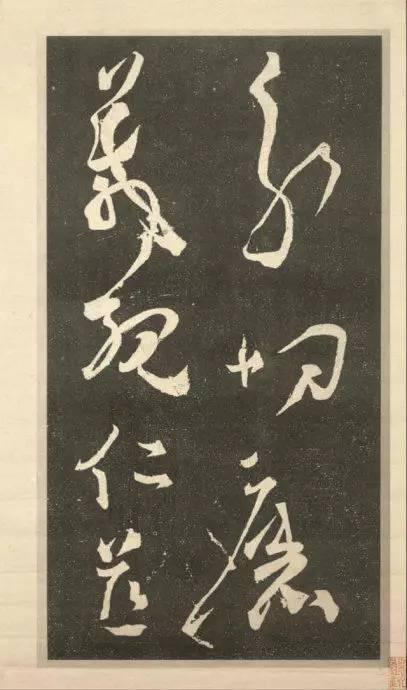 分切磨
箴規仁慈